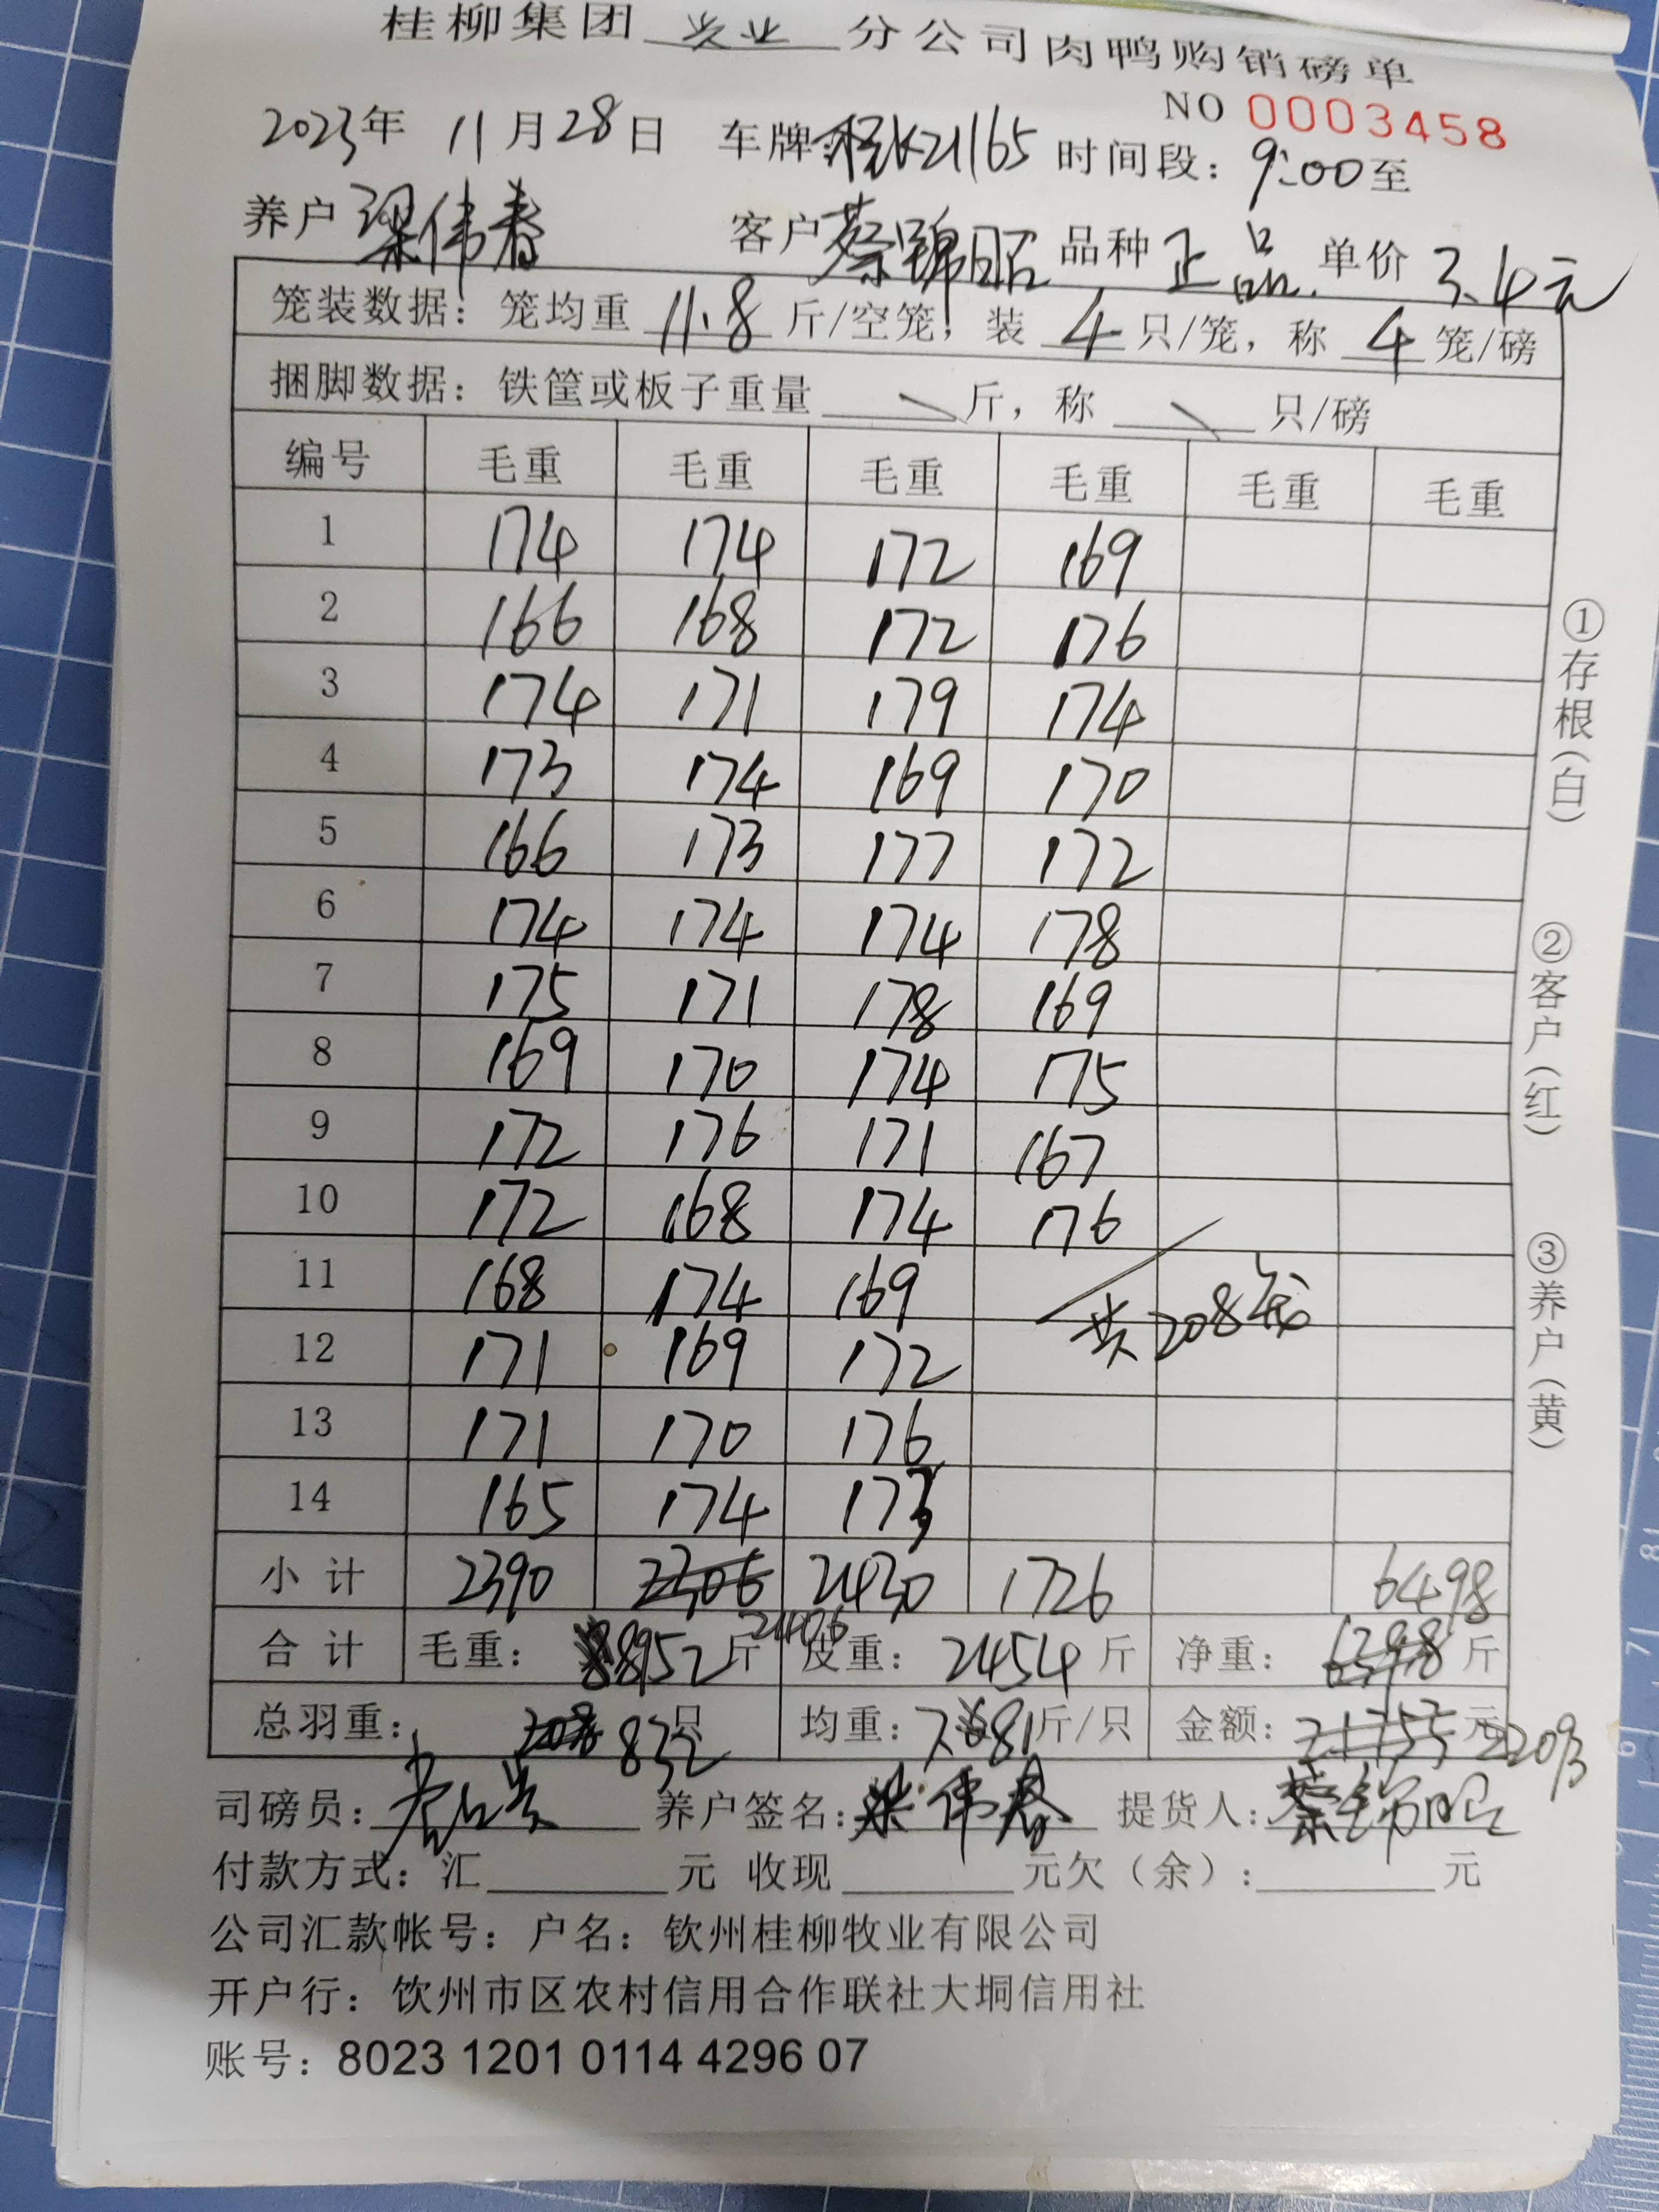 桂柳集团 牧业 分公司肉鸭购销磅单
NO 0003458
2023年 11月28日 车牌:桂K21165 时间段:9:00至
养户 梁伟春 客户 蔡锦昭 品种 正品. 单价 3.4元
笼装数据:笼均重 11.8 斤/空笼,装 4 只/笼,称 4 笼/磅
捆脚数据:铁筐或板子重量 \ 斤,称 \ 只/磅
编号 毛重 毛重 毛重 毛重 毛重 毛重
1 174 174 172 169
2 166 168 172 176
3 174 171 179 174
4 173 174 169 170
5 166 173 177 172
6 174 174 174 178
7 175 171 178 169
8 169 170 174 175
9 172 176 171 167
10 172 168 174 176
11 168 174 169
共208笼
12 171 169 172
13 171 170 176
14 165 174 173
小计 2390 2306 2430 1726 6498
2406
合计 毛重: 8952斤 皮重: 2454斤 净重: 6398斤
总羽重: 208 832只 均重: 7.81斤/只 金额: 21753元 22093
司磅员: 养户签名:梁伟春 提货人:蔡锦昭
付款方式:汇 元 收现 元欠(余): 元
公司汇款帐号:户名:钦州桂柳牧业有限公司
开户行:钦州市区农村信用合作联社大垌信用社
账号:8023 1201 0114 4296 07
①存根(白)
②客户(红)
③养户(黄)